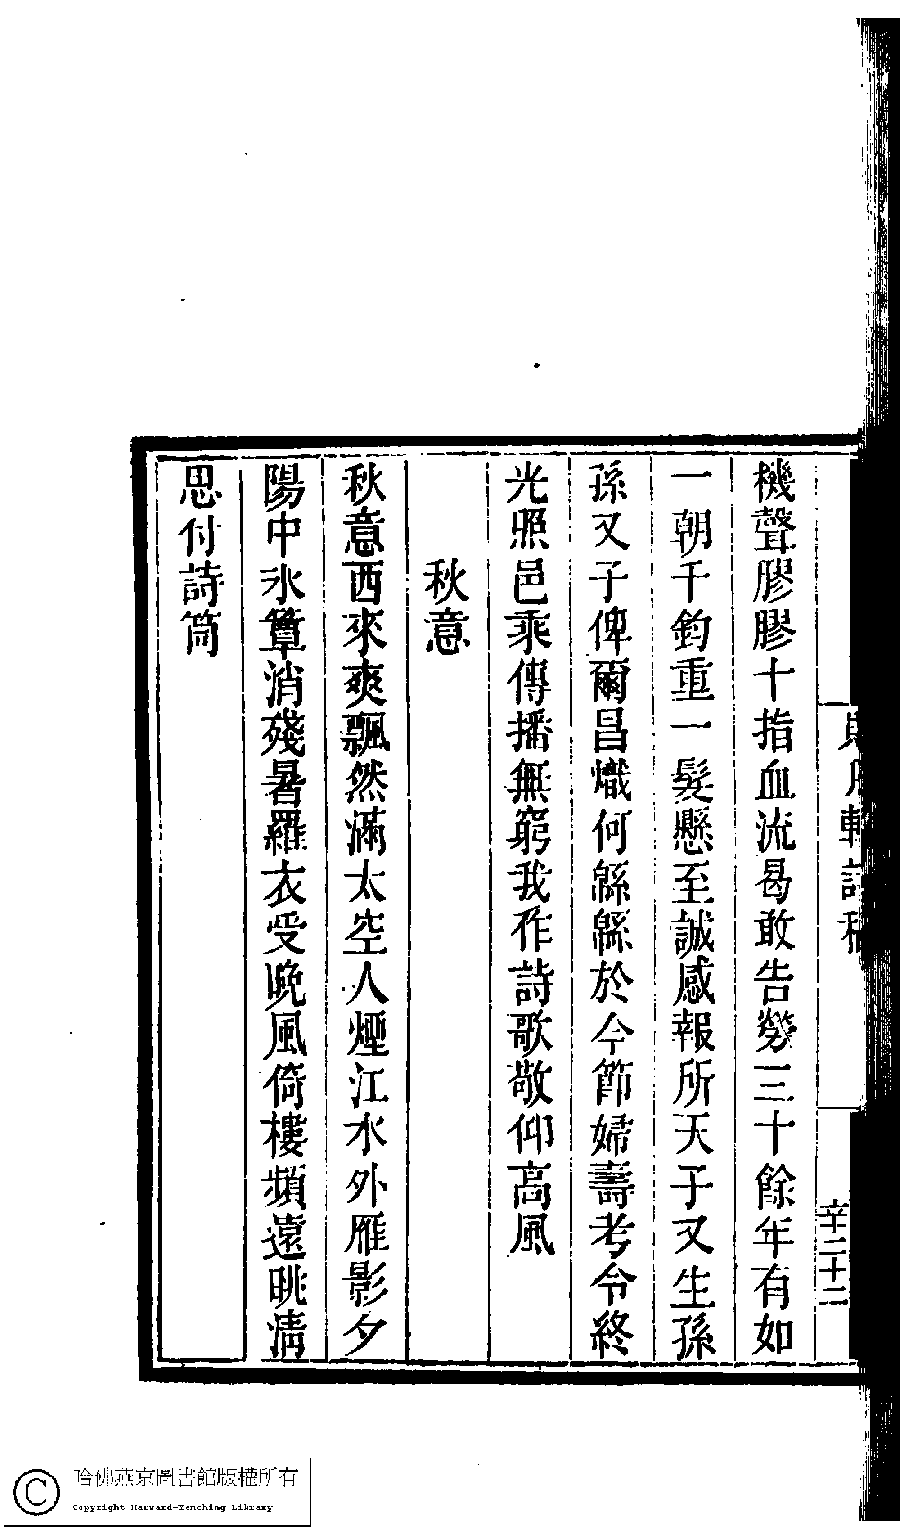 機聲膠膠十指血流曷敢告勞三十餘年有如
一朝千鈞重一髮懸至誠感報所天子又生孫
孫又子俾爾昌熾何緜緜於今節婦壽考令終
光照邑乘傳播無窮我作詩歌敬仰高風
秋意
秋意西來爽飄然滿太空人煙江水外雁影夕
陽中氷簟消殘暑羅衣受晚風倚樓頻遠眺清
思付詩筒
軒詩稿
辛二十二
哈佛燕京圖書館版權所有
Copyright Harvard-Yenching Library